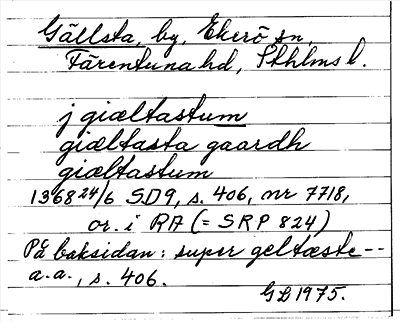 Gällsta, by, Ekerö sn,
Färentuna hd, Sthlms l.
j giæltastum
giæltasta gaardh
giæltastum
1368 24/6 SD9, s. 406, nr 7718,
or. i RA (= SRP 824)
På baksidan: super geltæste--
a.a., s. 406.
GB 1975.